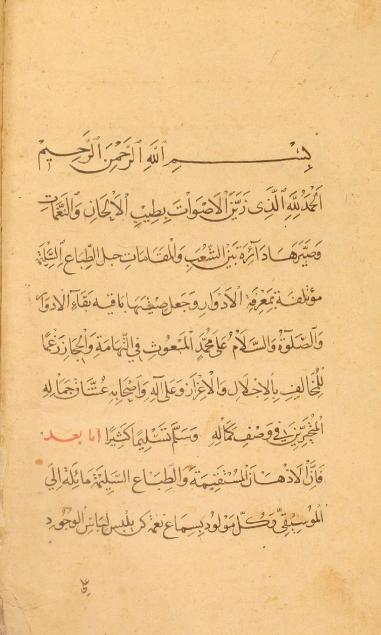 بِسْمِ اللَّهِ الرَّحْمٰنِ الرَّحِيمِ
الْحَمْدُ لِلَّهِ الَّذِي زَيَّنَ الْأَصْوَاتَ بِطِيبِ الْأَلْحَانِ وَالنَّغَمَاتِ
وَصَيَّرَهَا دَائِرَةً بَيْنَ الشُّعَبِ وَالْمَقَامَاتِ الطِّبَاعِ السَّلِيمَة
مؤتلفة بِمَعْرِفَةِ الْأَدْوَارِ وَجَعَلَ فِيهِ بَقَاءَ الْأَدْوَار
وَالصَّلَوةُ وَالسَّلَامُ عَلَى مُحَمَّدٍ الْمَبْعُوثِ فِي التِّهَامَةِ وَالْحِجَازِ رَغْمًا
لِلْمُخَالِفِ بِالْإِجْلَالِ وَالْإِعْزَازِ وَعَلَى آلِهِ وَأَصْحَابِهِ عُشَّاقِ جَمَالِهِ
فِي وَصْفِ كَمَالِهِ وَسَلَّمَ تَسْلِيمًا كَثِيرًا اما بعد
فَإِنَّ الْأَذْهَانَ الْمُسْتَقِيمَةَ وَالطِّبَاعَ السَّلِيمَةَ مَائِلَةٌ إِلَى
الْمُوسِيقِي وَكُلَّ مَوْلُودٍ بِسَمَاعِ نغمة كن يلبس لباس الوجود